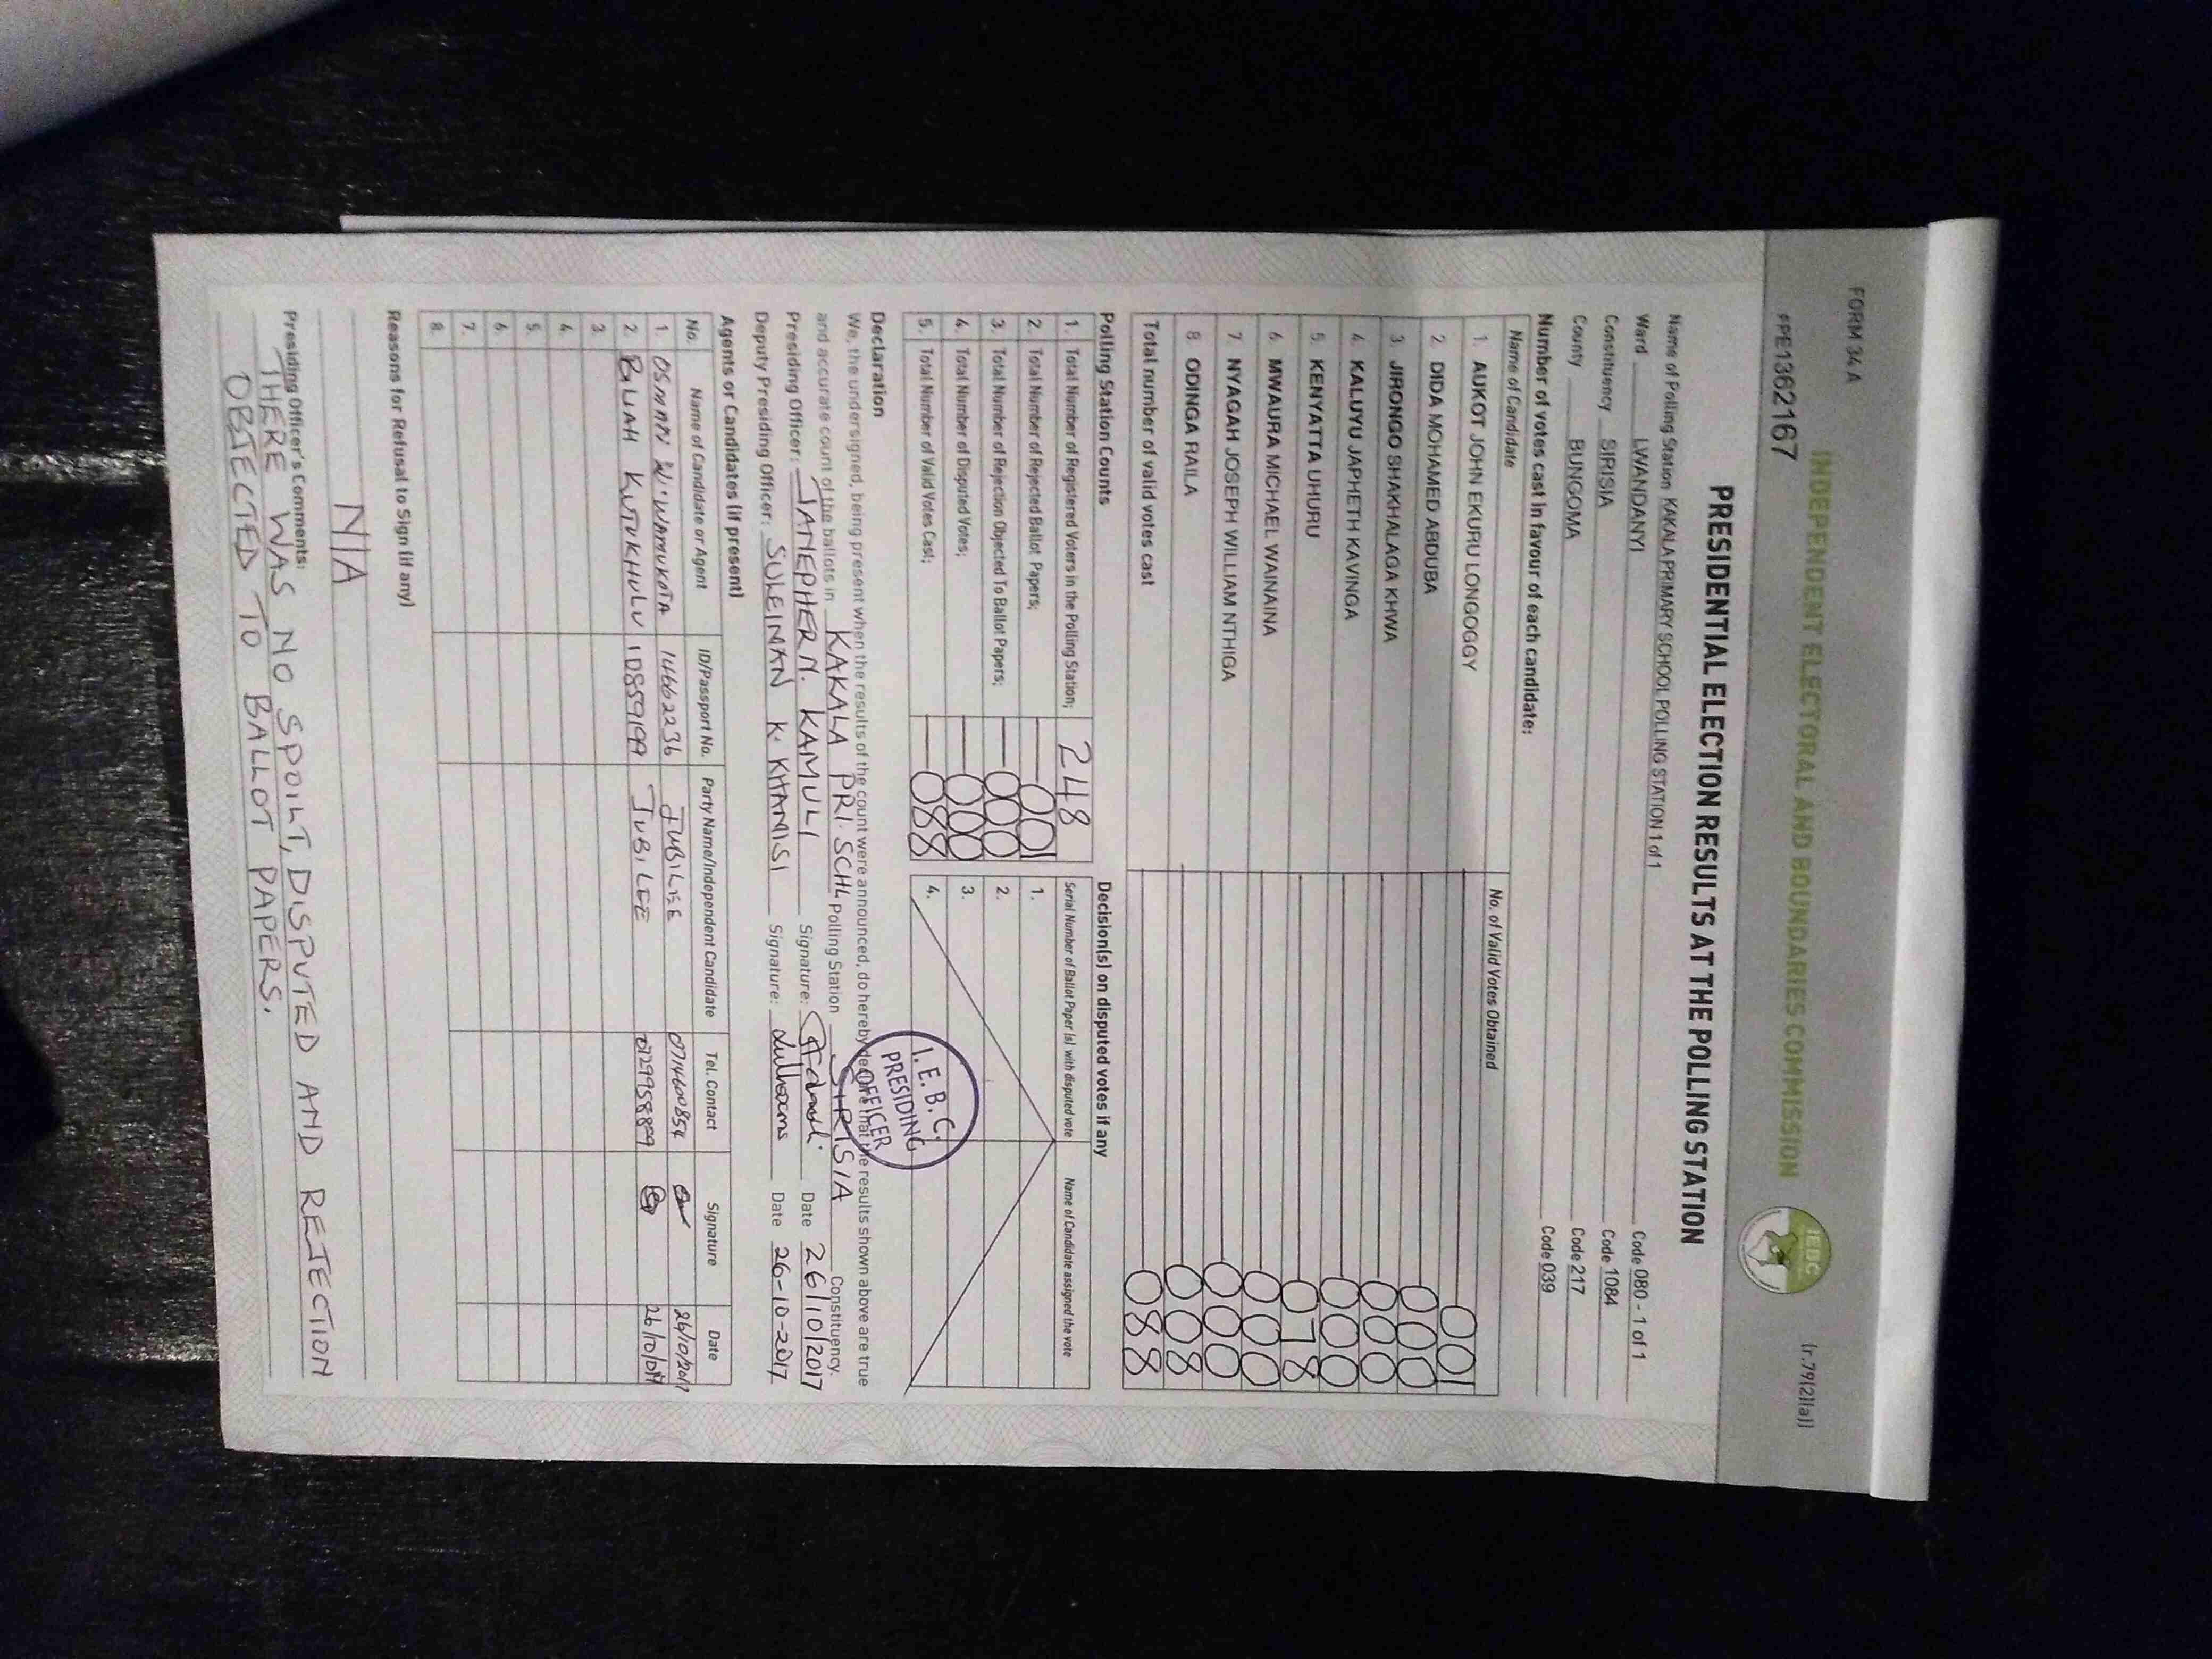 FORM 34 A
(r.79(2)(a))
INDEPENDENT ELECTORAL AND BOUNDARIES COMMISSION
IEBC
PPE1362167
PRESIDENTIAL ELECTION RESULTS AT THE POLLING STATION
Name of Polling Station KAKALA PRIMARY SCHOOL POLLING STATION 1 of 1 Code 080 - 1 of 1
Ward LWANDANYI Code 1084
Constituency SIRISIA Code 217
County BUNGOMA Code 039
Number of votes cast in favour of each candidate:
Name of Candidate No. of Valid Votes Obtained
1. AUKOT JOHN EKURU LONGOGGY 001
2. DIDA MOHAMED ABDUBA 000
3. JIRONGO SHAKHALAGA KHWA 000
4. KALUYU JAPHETH KAVINGA 000
5. KENYATTA UHURU 078
6. MWAURA MICHAEL WAINAINA 000
7. NYAGAH JOSEPH WILLIAM NTHIGA 000
8. ODINGA RAILA 008
Total number of valid votes cast 088
Polling Station Counts
1. Total Number of Registered Voters in the Polling Station; 248
2. Total Number of Rejected Ballot Papers; 001
3. Total Number of Rejection Objected To Ballot Papers; 000
4. Total Number of Disputed Votes; 000
5. Total Number of Valid Votes Cast; 088
Decision(s) on disputed votes if any
Serial Number of Ballot Paper (s) with disputed vote Name of Candidate assigned the vote
1.
2.
3.
4.
Declaration
We, the undersigned, being present when the results of the count were announced, do hereby declare that the results shown above are true
and accurate count of the ballots in KAKALA PRI. SCHL Polling Station SIRISIA Constituency.
Presiding Officer: JANEPHER N. KAMULI Signature: Date 26/10/2017
Deputy Presiding Officer: SULEIMAN K. KHAMISI Signature: Date 26-10-2017
I.E.B.C.
PRESIDING
OFFICER
Agents or Candidates (if present)
No. Name of Candidate or Agent ID/Passport No. Party Name/Independent Candidate Tel. Contact Signature Date
1. OSMAN W. WAMUKOTA 14662236 JUBILEE 0714600854 26/10/2017
2. KUTUKHULU 10859199 JUBILEE 26/10/017
3.
4.
5.
6.
7.
8.
Reasons for Refusal to Sign (if any)
N/A
Presiding Officer's Comments:
THERE WAS NO SPOILT, DISPUTED AND REJECTION
OBJECTED TO BALLOT PAPERS.